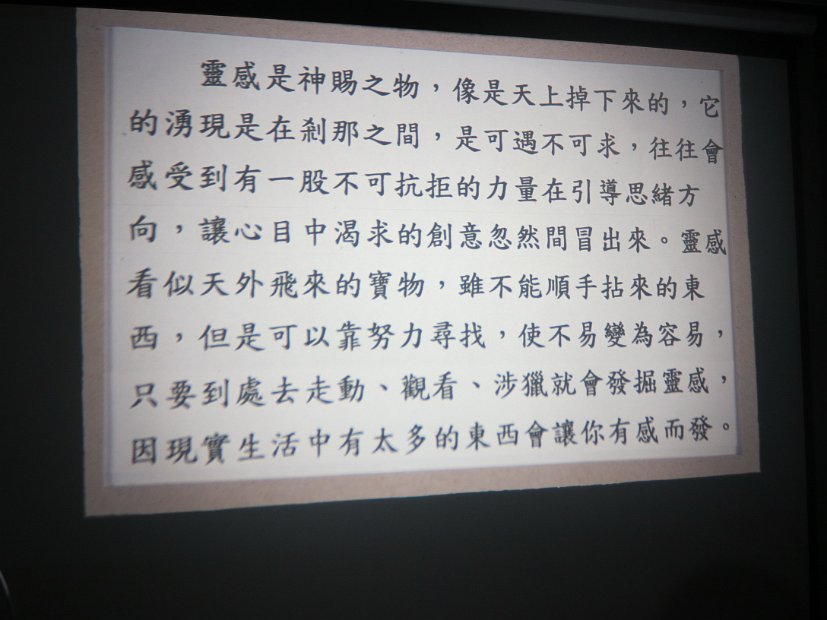 靈感是神賜之物，像是天上掉下來的，它
的湧現是在剎那之間，是可遇不可求，往往會
感受到有一股不可抗拒的力量在引導思緒方
向，讓心目中渴求的創意忽然間冒出來。靈感
看似天外飛來的寶物，雖不能順手拈來的東
西，但是可以靠努力尋找，使不易變為容易，
只要到處去走動、觀看、涉獵就會發掘靈感，
因現實生活中有太多的東西會讓你有感而發。